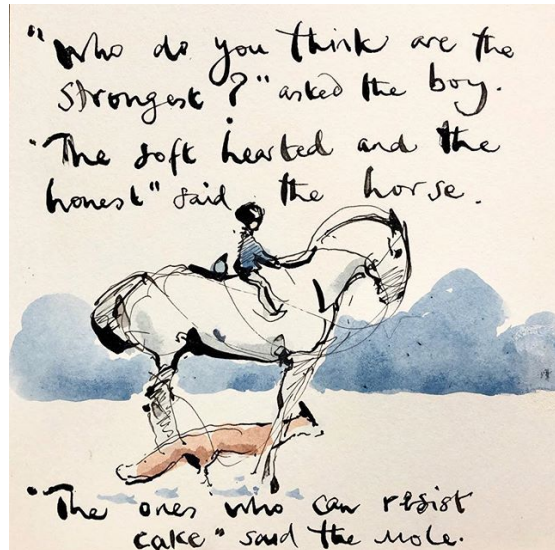 "Who do you think are the
strongest?" asked the boy.
"The soft hearted and the
honest" said the horse.
"The ones who can resist
cake" said the mole.